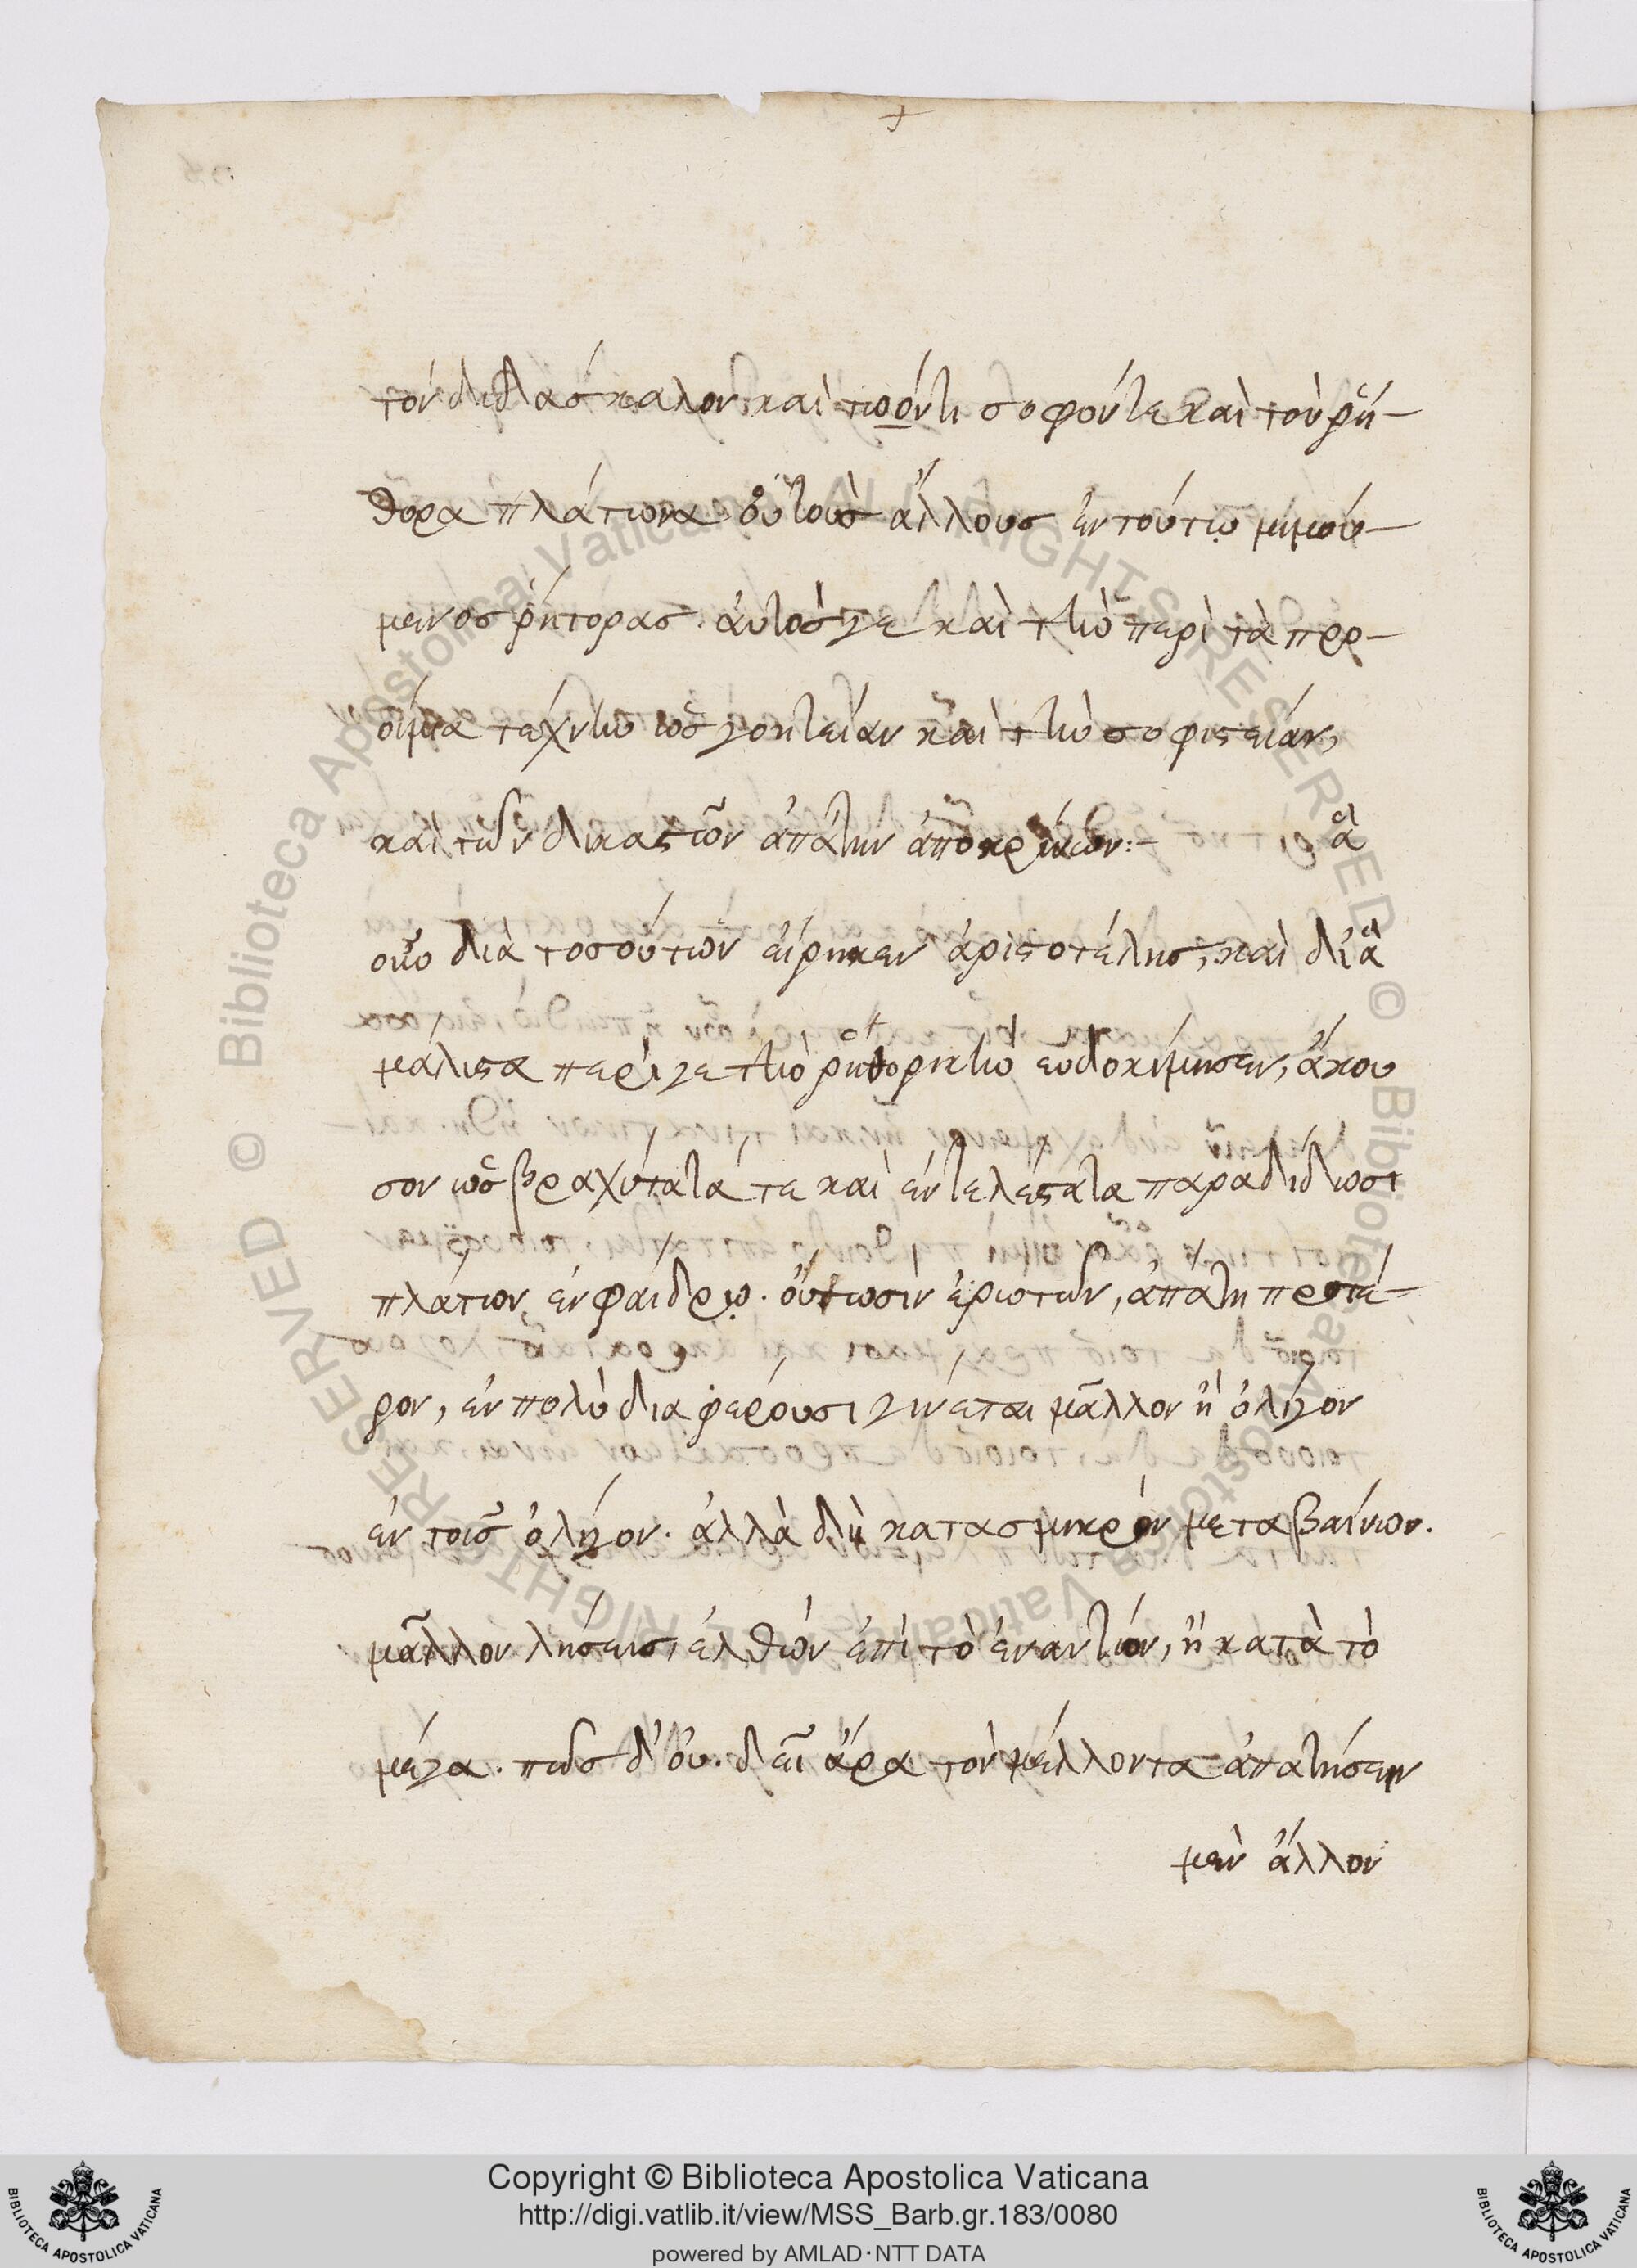 τὸν διδάσκαλον καὶ τωόντι σοφόντε καὶ τὸν ῥή-
θορα πλάτωνα. ὁυ τοὺσ ἄλλουσ ἐν τούτῳ μιμού-
μενοσ ῥήτορασ. ἀυτόσγε καὶ τὴν περὶ τὰ προ-
οίμια τέχνην ὡσ γοητείαν καὶ τὴν σοφιστείαν,
καὶ τῶν δικαστῶν ἀπάτην ἀποκρίνων:- ἃ
οὖν διὰ τοσούτων ἐίρηκεν ἀριστοτέλησ, καὶ δι' ἃ
μάλιστα περί γε τὴν ῥητορικὴν ευδοκίμησεν, ἄκου
σον ὡσ βραχύτατά τε καὶ ἐντελέστατα παραδίδωσι
πλάτων ἐν φαίδρῳ. ὁύτωσὶν ἐρωτῶν, ἀπάτη πρστέ-
ρον, ἐν πολὺ διαφέρουσι γίνεται μᾶλλον ἢ ὀλίγον
ἐν τοισ ὀλίγον. ἀλλὰ δὴ κατασμικρὸν μεταβαίνων.
μᾶλλον λήσεισ, ἐλθὼν ἐπὶ τὸ ἐναντίον, ἢ κατὰ τὸ
μέγα. πῶσ δ' ὀυ. δεῖ ἄρα τὸν μέλλοντα ἀπατήσειν
μεν ἄλλον
Copyright © Biblioteca Apostolica Vaticana
http://digi.vatlib.it/view/MSS_Barb.gr.183/0080
powered by AMLAD·NTT DATA
BIBLIOTECA APOSTOLICA VATICANA
BIBLIOTECA APOSTOLICA VATICANA